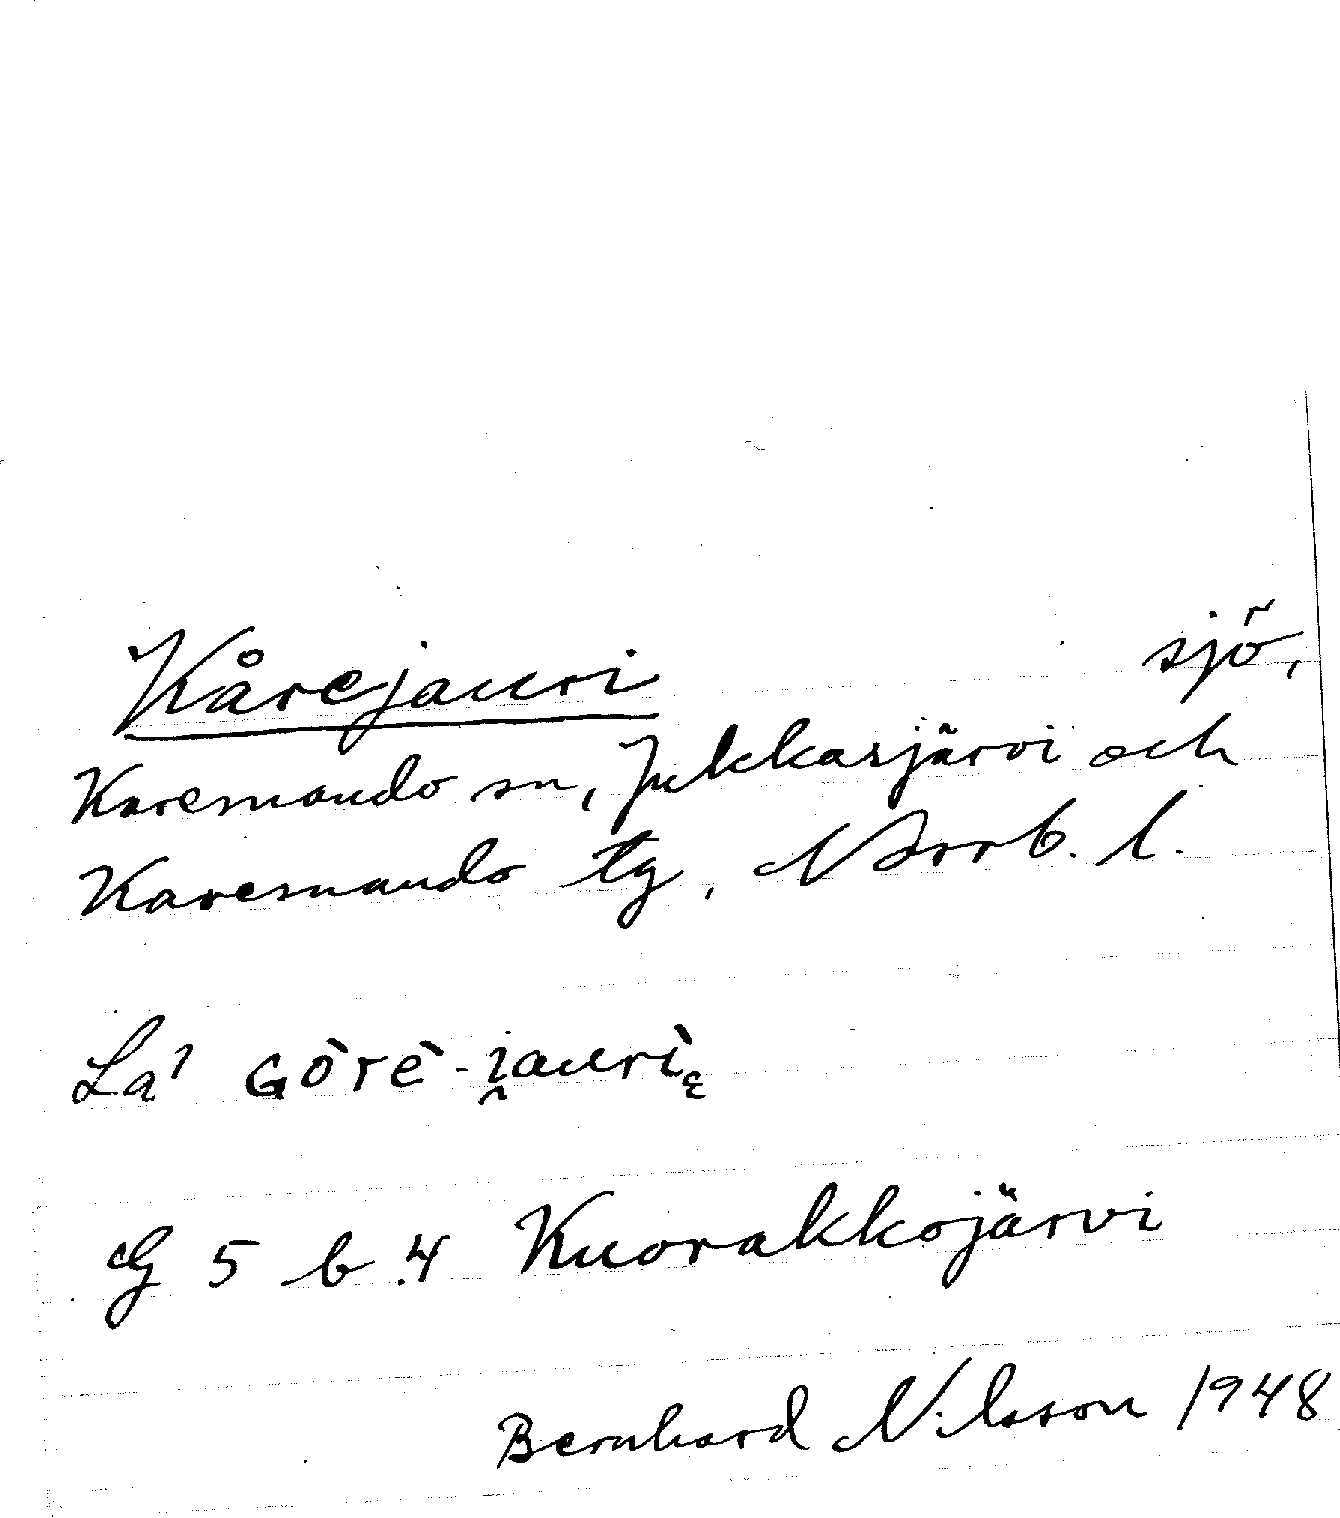 Kårejauri sjö,
Karesuando sn, Jukkasjärvi och
Karesuando tg, Norrb. l.
La' Gòrè-i̯aurì
G 5 b 4 Kuorakkojärvi
Bernhard Nilsson 1948